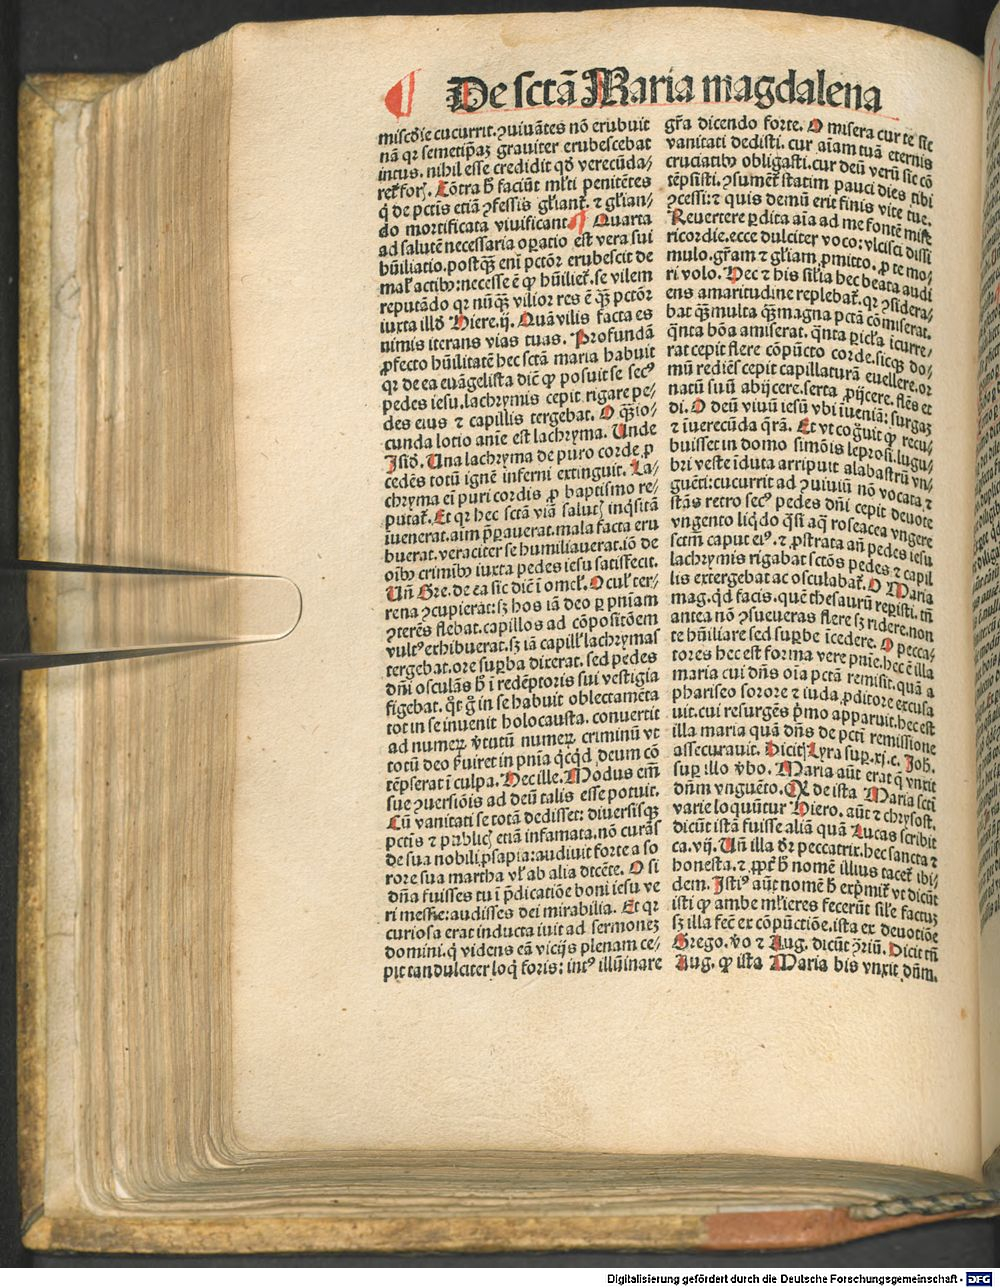 De sctā Maria magdalena
miscd̄ie cucurrit. ꝛuiuātes nō erubuit
nā qꝛ semetip̄aꝫ grauiter erubescebat
intus. nihil esse credidit qd̄ verecūda/
ret̄ forꝭ. Cōtra h̄ faciūt ml̄ti penitētes
q̇ de pctīs etiā ꝯfessis gl̄iant̄. ⁊ gl̄ian/
do mortificata viuificant Quarta
ad salutē necessaria oꝑatio est vera sui
hūiliatio. postqꝫ̄ eni pctōꝝ erubescit de
mal̄ actibꝫ: necesse ē ꝙ hūiliet̄. se vilem
reputādo qꝛ nūqꝫ̄ vilior res ē qꝫ̄ pctōꝝ
iuxta illd̄ Hiere. ij. Quā vilis facta es
nimis iterans vias tuas. Profundā
ꝓfecto hūilitatē hec sctā maria habuit
qꝛ de ea euāgelista dic̄ ꝙ posuit se secꝰ
pedes iesu. lachrymis cepit rigare pe/
des eius ⁊ capillis tergebat. O qꝫ̄ io/
cunda lotio anie est lachryma. Unde
Isid̄. Una lachryma de puro corde ꝓ
cedēs totū ignē inferni extinguit. La/
chryma ei puri cordis ꝓ baptismo re/
putat̄. Et qꝛ hec sctā viā salutꝭ inq̇sitā
iuenerat. aim p̄parauerat. mala facta eru
buerat. veraciter se humiliauerat. iō de
oībꝫ crimībꝫ iuxta pedes iesu satisfecit.
Uñ Gre. de ea sic dic̄ i omel̄. Ocul̄ ter/
rena ꝯcupierat: sꝫ hos iā deo ꝑ pn̄iam
ꝯterēs flebat. capillos ad cōpositōem
vultꝰ exhibuerat. sꝫ iā capill̄ lachrymas
tergebat. ore suꝑba dixerat. sed pedes
dn̄i osculās h̄ i redēptoris sui vestigia
figebat. qt̄ g̊ in se habuit oblectamēta
tot in se inuenit holocausta. conuertit
ad numeꝝ v̄tutū numeꝝ criminū vt
totū deo s̄uiret in pn̄ia q̇cq̇d deum cō
tēpserat i culpa. Hec ille. Modus em̄
sue ꝯuersiōis ad deū talis esse potuit.
Cū vanitati se totā dedisset: diuersisqꝫ
pctīs ⁊ publicꝭ etiā infamata. nō curās
de sua nobili ꝓsapia: audiuit forte a so
rore sua martha vl̄ ab alia dicēte. O si
dn̄a fuisses tu i p̄dicatiōe boni iesu ve
ri messie: audisses dei mirabilia. Et qꝛ
curiosa erat inducta iuit ad sermonez
domini. q̇ videns eā vicijs plenam ce/
pit tan dulciter loq̇ foris: intꝰ illūinare
gr̄a dicendo forte. O misera cur te sic
vanitati dedisti. cur aīam tuā eternis
cruciatibꝫ obligasti. cur deū verū sic cō
tēpsisti. ꝯsumēt̄ statim pauci dies tibi
ꝯcessi: ⁊ quis demū erit finis vite tue.
Reuertere ꝑdita aīa ad me fontē mis̄e
ricordie. ecce dulciter voco: vlcisci dissi
mulo. gr̄am ⁊ gl̄iam ꝓmitto. ꝓ te mo/
ri volo. Hec ⁊ his sil̄ia hec beata audi
ens amaritudine replebat̄. qꝛ ꝯsidera/
bat qꝫ̄ multa qꝫ̄ magna pctā cōmiserat.
q̄nta bōa amiserat. q̄nta ꝑicl̄a icurre/
rat cepit flere cōpūcto corde. sicqꝫ do/
mū rediēs cepit capillaturā euellere. or
natū suū abijcere. serta ꝓijcere. flēs et
di. O deū viuū iesū vbi iueniā: surgaꝫ
⁊ iuerecūda q̄rā. Et vt cog̊uit ꝙ recu/
buisset in domo simōis leprosi. lugu/
bri veste iduta arripuit alabastrū vn/
guēti: cucurrit ad ꝯuiuiū nō vocata ⁊
stās retro secꝰ pedes dn̄i cepit deuote
vngento liq̇do q̄si aq̄ roseacea vngere
sctm̄ caput eiꝰ. ⁊ ꝓstrata an̄ pedes iesu
lachrymis rigabat sctōs pedes ⁊ capil
lis extergebat ac osculabat̄. O Maria
mag. qd̄ facis. quē thesaurū reꝑisti. tn̄
antea nō ꝯsueueras flere sꝫ ridere. non
te hūiliare sed suꝑbe icedere. O pecca/
tores hec est forma vere pn̄ie. hec ē illa
maria cui dn̄s oīa pctā remisit. quā a
phariseo sorore ⁊ iuda ꝓditore excusa
uit. cui resurgēs p̄mo apparuit. hec est
illa maria quā dn̄s de pctī remissione
assecurauit. Dicitꝭ Lyra suꝑ. xj. c. Joh.
suꝑ illo v̄bo. Maria aūt erat q̄ vnxit
dn̄m vnguēto. Qꝛ de ista Maria sctī
varie loquūtur Hiero. aūt ⁊ chrysost.
dicūt istā fuisse aliā quā Lucas scribit
ca. vij. Uñ illa dr̄ peccatrix. hec sancta ⁊
honesta. ⁊ ꝓpt̄ h̄ nomē illius tacet̄ ibi/
dem. Istiꝰ aūt nomē h̄ exp̄mit̄ vt dicūt
isti ꝙ ambe ml̄ieres fecerūt sil̄e factuꝫ
sꝫ illa fec̄ ex cōpūctiōe. ista ex deuotiōe
Grego. v̄o ⁊ Aug. dicūt ꝯ̄riū. Dicit tn̄
Aug. ꝙ ista Maria bis vnxit dn̄m.
Digitalisierung gefördert durch die Deutsche Forschungsgemeinschaft - DFG